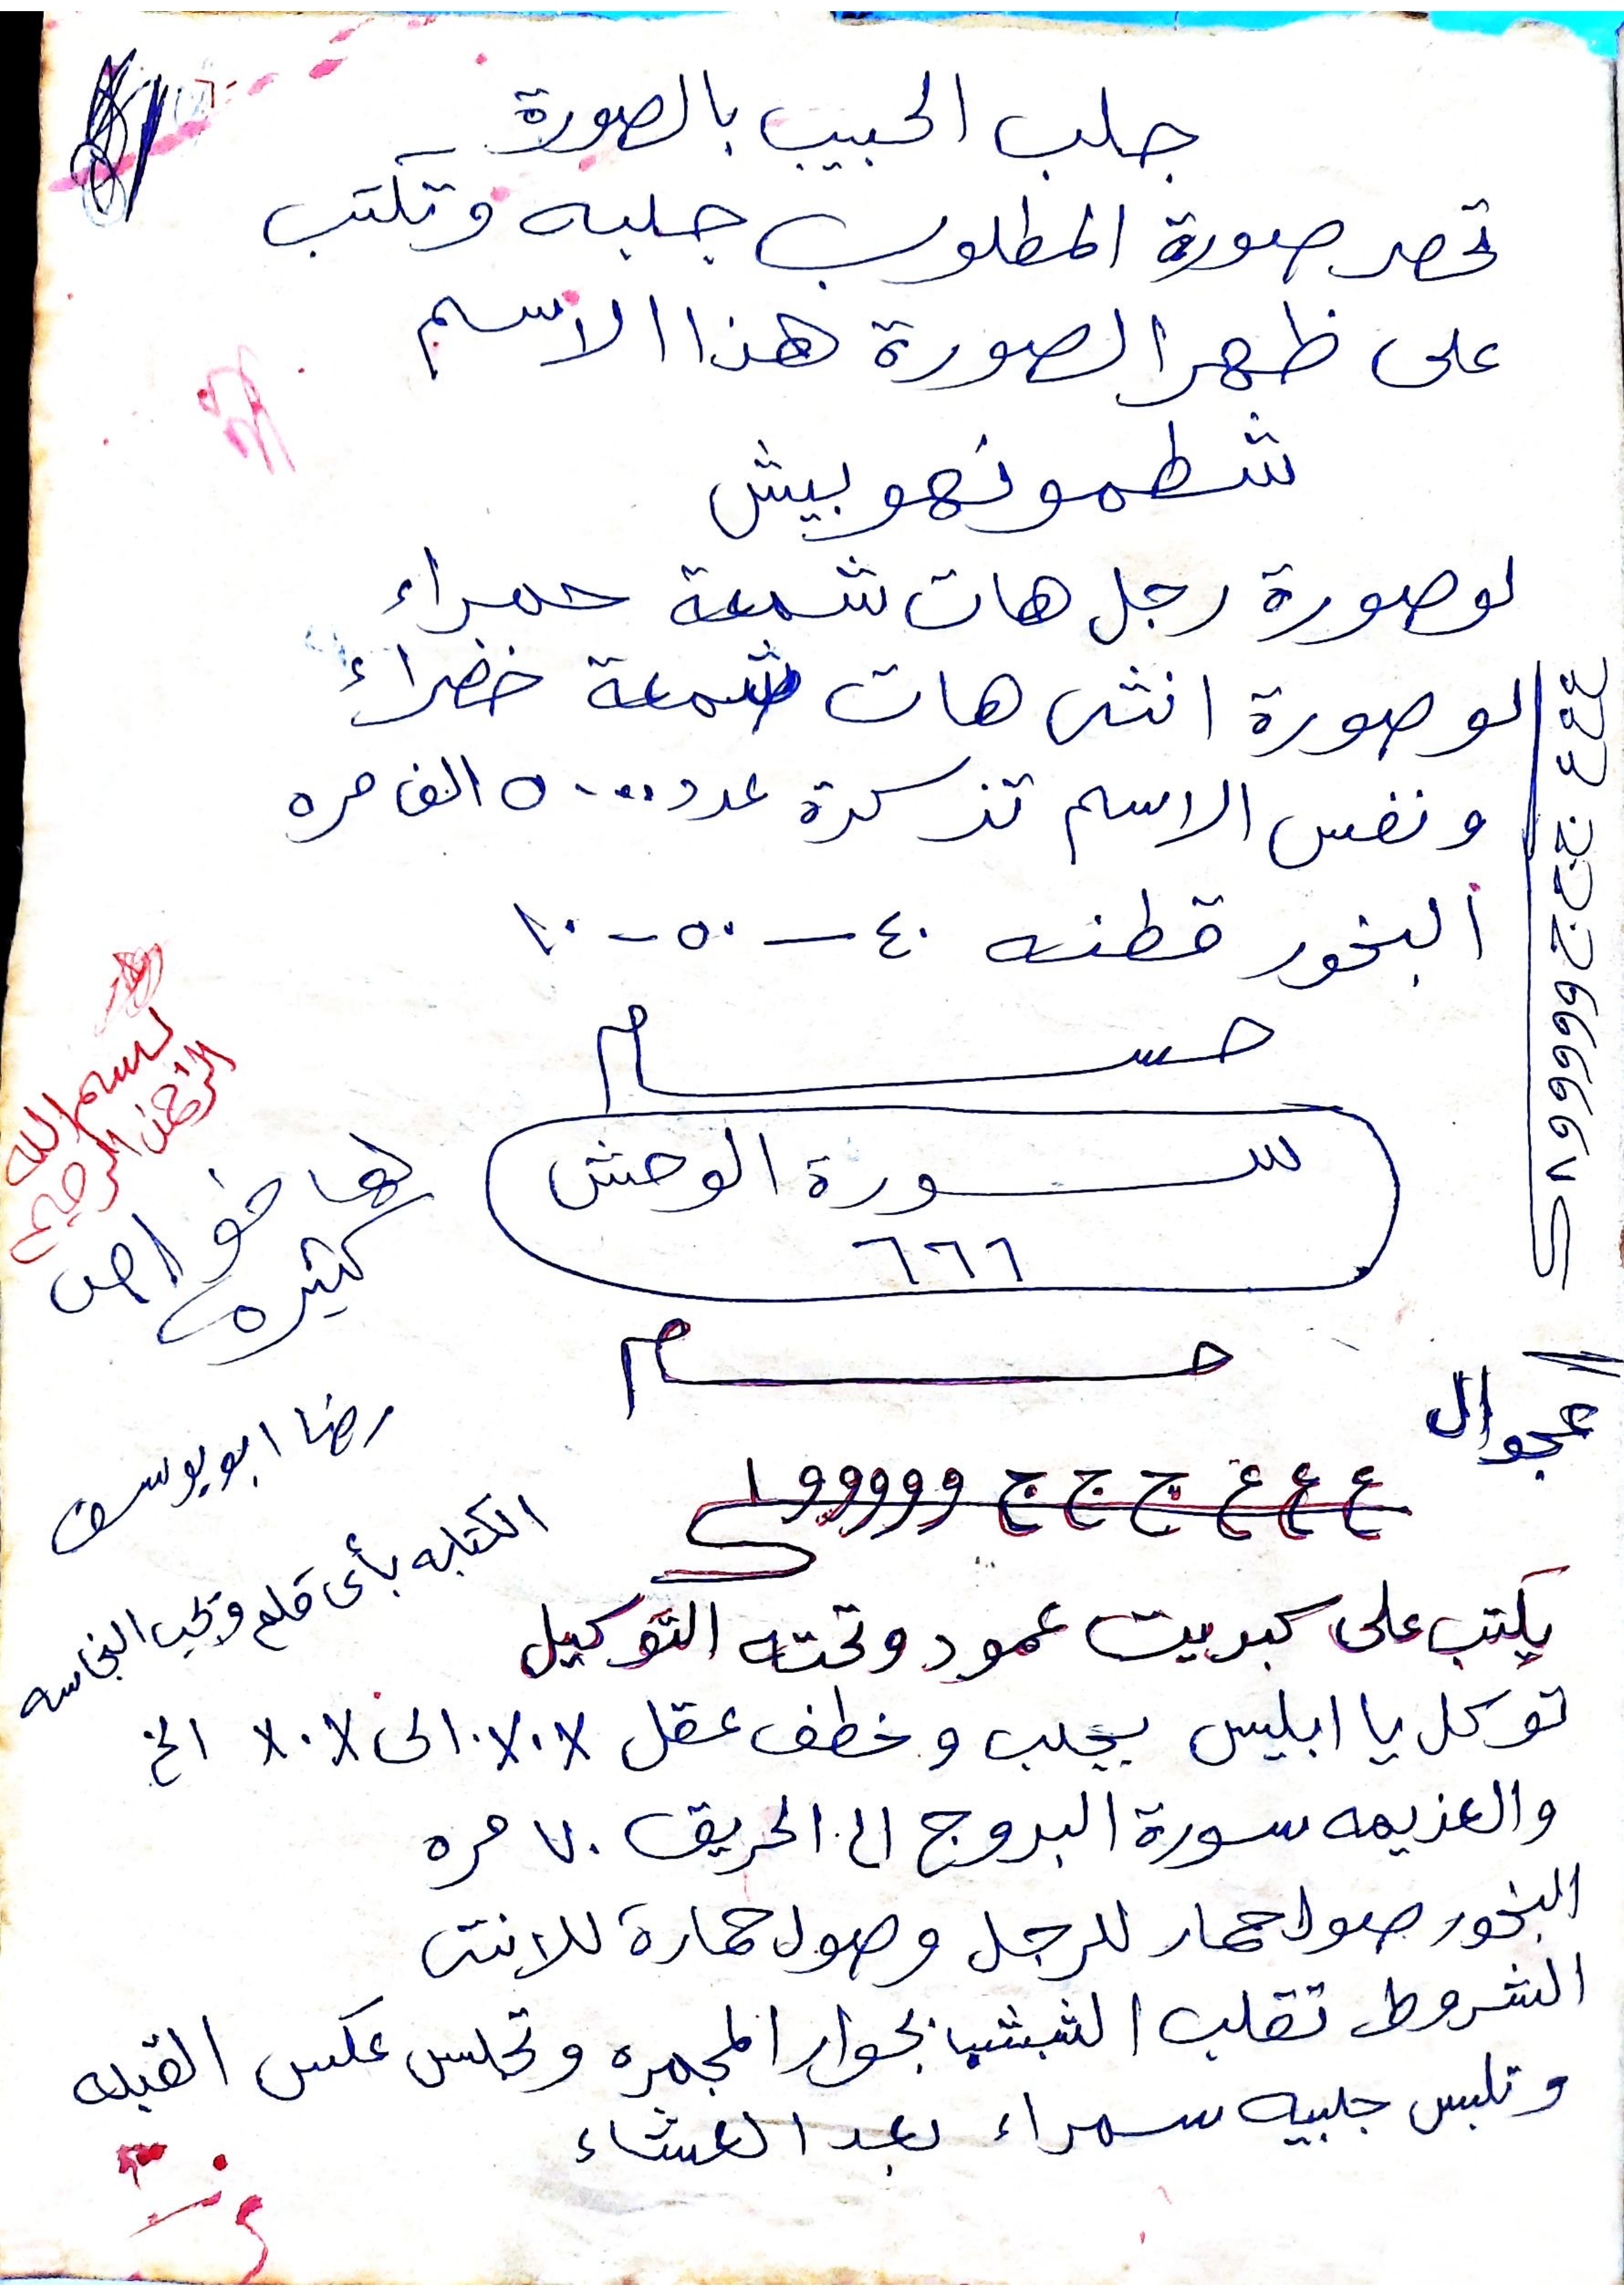 جلب الحبيب بالصورة
تحضر صورة المطلوب جلبه وتكتب
على ظهر الصورة هذا الاسم
شطمونهوبيش
لو صورة رجل هات شمعة حمراء
لو صورة انثى هات شمعة خضراء
ونفس الاسم تذكرة عدد ٥٠٠٠ الف مره
البخور قطنه ٤٠ – ٥٠ – ١٠
حسام
سورة الوحش
٦٦٦
لها خواص
كثيره
بسم الله
الرحمن الرحيم
حسام
رضا ابو يوسف
الكتابه بأى قلم وتجب النجاسه
عجوال
ع ع غ غ ج ج ج و و و و و ا
يكتب على كبريت عمود وتحته التوكيل
توكل يا ابليس بجلب وخطف عقل الى الخ
والعزيمه سورة البروج الى الحريق ٧٠ مره
البخور صول حمار للرجل وصول حمارة للانثى
الشروط تقلب الشبشب بجوار المجمره وتجلس عكس القبله
وتلبس جلبيه سمراء بعد العشاء